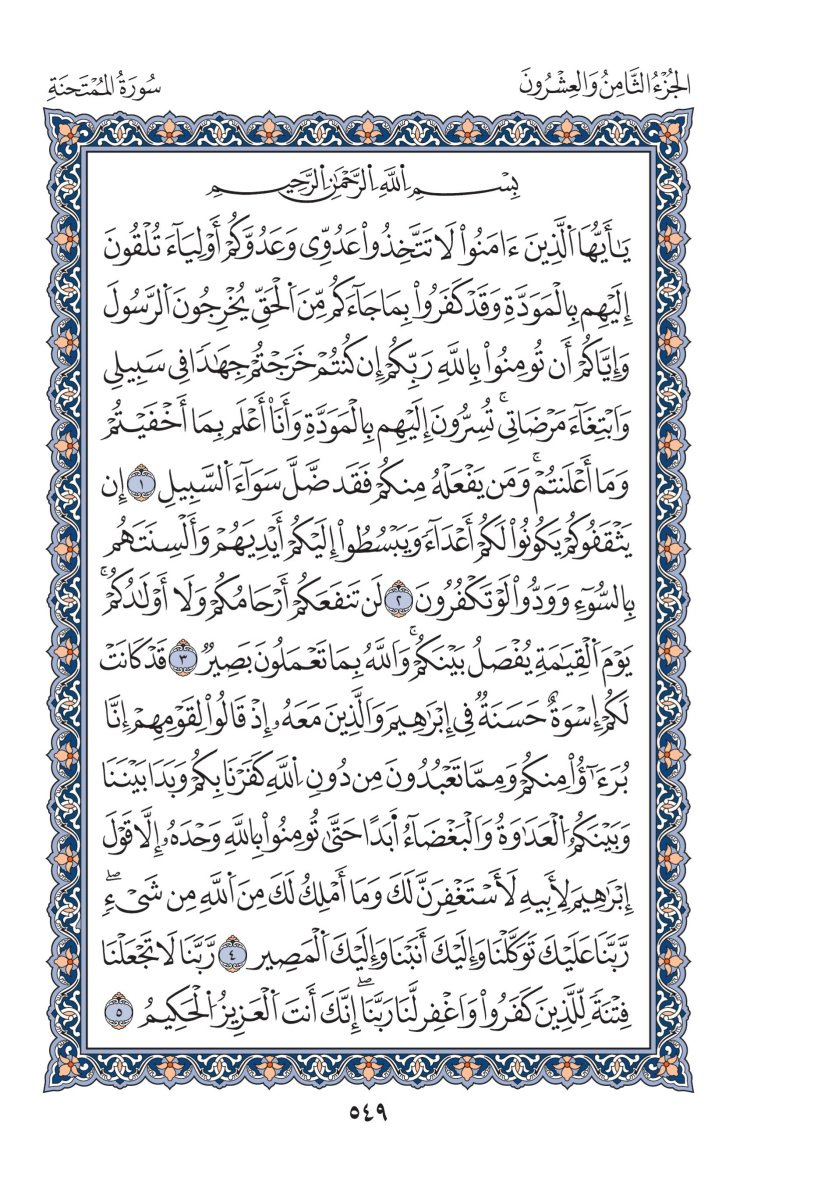 الجُزْءُ الثَّامِنُ وَالعِشْرُونَ
سُورَةُ المُمْتَحنَةِ
بِسْمِ ٱللَّهِ ٱلرَّحْمَٰنِ ٱلرَّحِيمِ
يَٰأَيُّهَا ٱلَّذِينَ ءَامَنُواْ لَا تَتَّخِذُواْ عَدُوِّى وَعَدُوَّكُمْ أَوْلِيَآءَ تُلْقُونَ
إِلَيْهِم بِالْمَوَدَّةِ وَقَدْ كَفَرُواْ بِمَا جَآءَكُم مِّنَ ٱلْحَقِّ يُخْرِجُونَ ٱلرَّسُولَ
وَإِيَّاكُمْ أَن تُومِنُواْ بِاللَّهِ رَبِّكُمْ إِن كُنتُمْ خَرَجْتُمْ جِهَٰدًا فِى سَبِيلِى
وَابْتِغَآءَ مَرْضَاتِىۚ تُسِرُّونَ إِلَيْهِم بِالْمَوَدَّةِ وَأَنَا۠ أَعْلَم بِمَا أَخْفَيْتُمْ
وَمَا أَعْلَنتُمْۚ وَمَن يَفْعَلْهُ مِنكُمْ فَقَد ضَّلَّ سَوَآءَ ٱلسَّبِيلِ ١ إِن
يَثْقَفُوكُمْ يَكُونُواْ لَكُمْ أَعْدَآءً وَيَبْسُطُواْ إِلَيْكُمْ أَيْدِيَهُمْ وَأَلْسِنَتَهُم
بِالسُّوٓءِ وَوَدُّواْ لَوْ تَكْفُرُونَ ٢ لَن تَنفَعَكُمْ أَرْحَامُكُمْ وَلَا أَوْلَٰدُكُمْۚ
يَوْمَ ٱلْقِيَٰمَةِ يُفْصَلُ بَيْنَكُمْۚ وَاللَّهُ بِمَا تَعْمَلُونَ بَصِيرٌ ٣ قَدْ كَانَتْ
لَكُمْ إِسْوَةٌ حَسَنَةٌ فِى إِبْرَٰهِيمَ وَالَّذِينَ مَعَهُۥ إِذْ قَالُواْ لِقَوْمِهِمْ إِنَّا
بُرَءَٰٓؤُاْ مِنكُمْ وَمِمَّا تَعْبُدُونَ مِن دُونِ ٱللَّهِ كَفَرْنَا بِكُمْ وَبَدَا بَيْنَنَا
وَبَيْنَكُمُ ٱلْعَدَٰوَةُ وَالْبَغْضَآءُ أَبَدًا حَتَّىٰ تُومِنُواْ بِاللَّهِ وَحْدَهُۥ إِلَّا قَوْلَ
إِبْرَٰهِيمَ لِأَبِيهِ لَأَسْتَغْفِرَنَّ لَكَ وَمَا أَمْلِكُ لَكَ مِنَ ٱللَّهِ مِن شَىْءٍۖ
رَّبَّنَا عَلَيْكَ تَوَكَّلْنَا وَإِلَيْكَ أَنَبْنَا وَإِلَيْكَ ٱلْمَصِير ٤ رَّبَّنَا لَا تَجْعَلْنَا
فِتْنَةً لِّلَّذِينَ كَفَرُواْ وَاغْفِر لَّنَا رَبَّنَاۖ إِنَّكَ أَنتَ ٱلْعَزِيزُ ٱلْحَكِيمُ ٥
٥٤٩